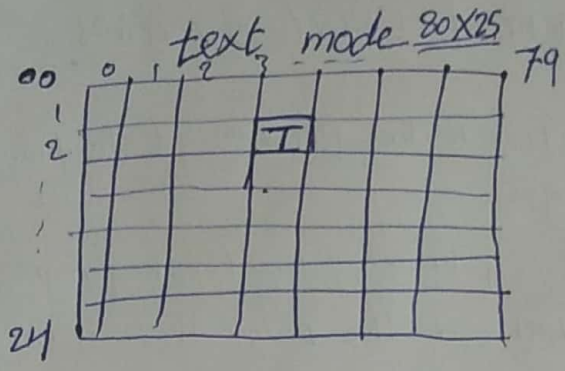 text mode 80X25
00 0 1 2 3 79
1
2 I
24